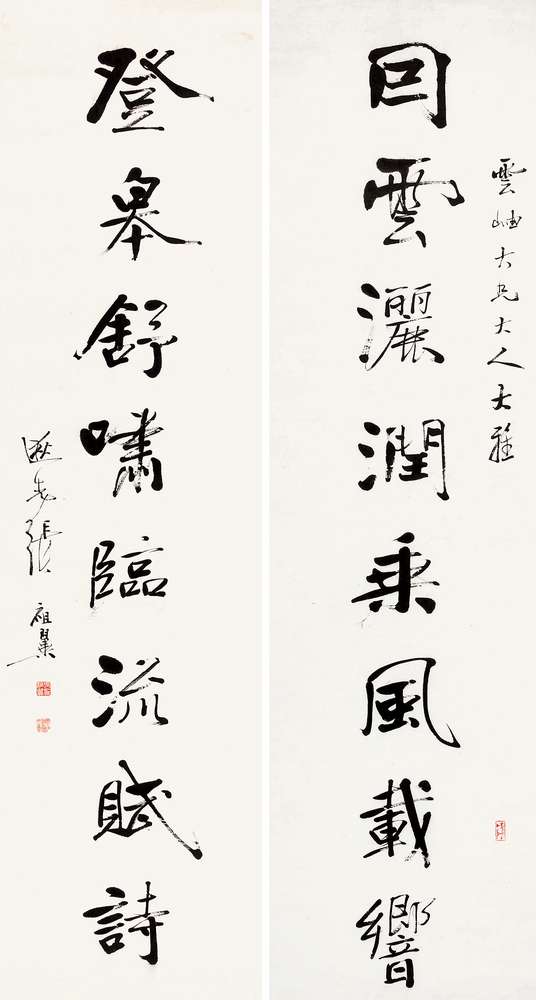 雲岫大兄大人大雅
回雲灑潤乘風載響
登皋舒嘯臨流賦詩
逖先張祖翼